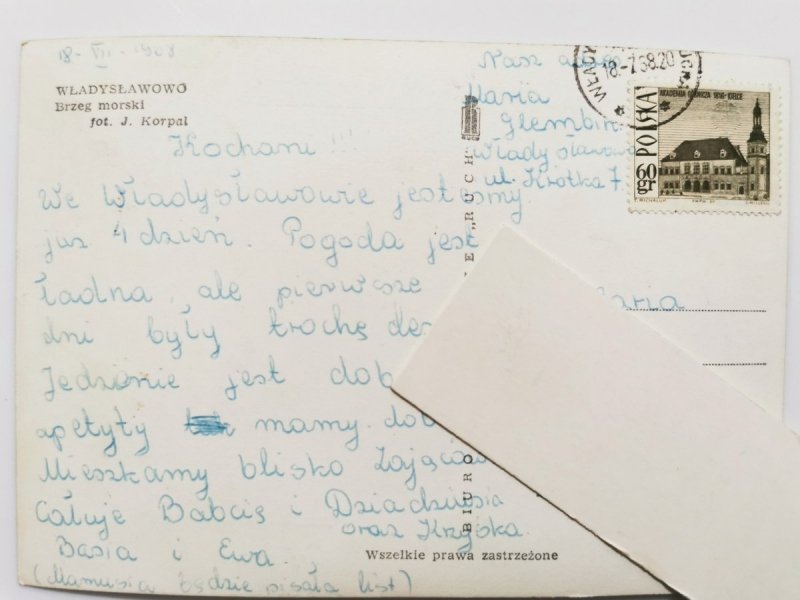 18-VII-1968
WŁADYSŁAWOWO
Brzeg morski
fot. J. Korpal
Nasz adres
Maria
Glembin
Władysławowo
ul. Krótka 7
18.-7.68.20
POLSKA
60 gr
AKADEMIA GÓRNICZA 1816-KIELCE
Kochani !!!
We Władysławowie jesteśmy
już 4 dzień. Pogoda jest
ładna, ale pierwsze
dni były trochę des
Jedzenie jest dob
apetyty mamy dob
Mieszkamy blisko Zająców
Całuję Babcię i Dziadziusia
oraz Krzyśka
Basia i Ewa.
(Mamusia będzie pisała list)
BIURO
"RUCH"
aria
Wszelkie prawa zastrzeżone